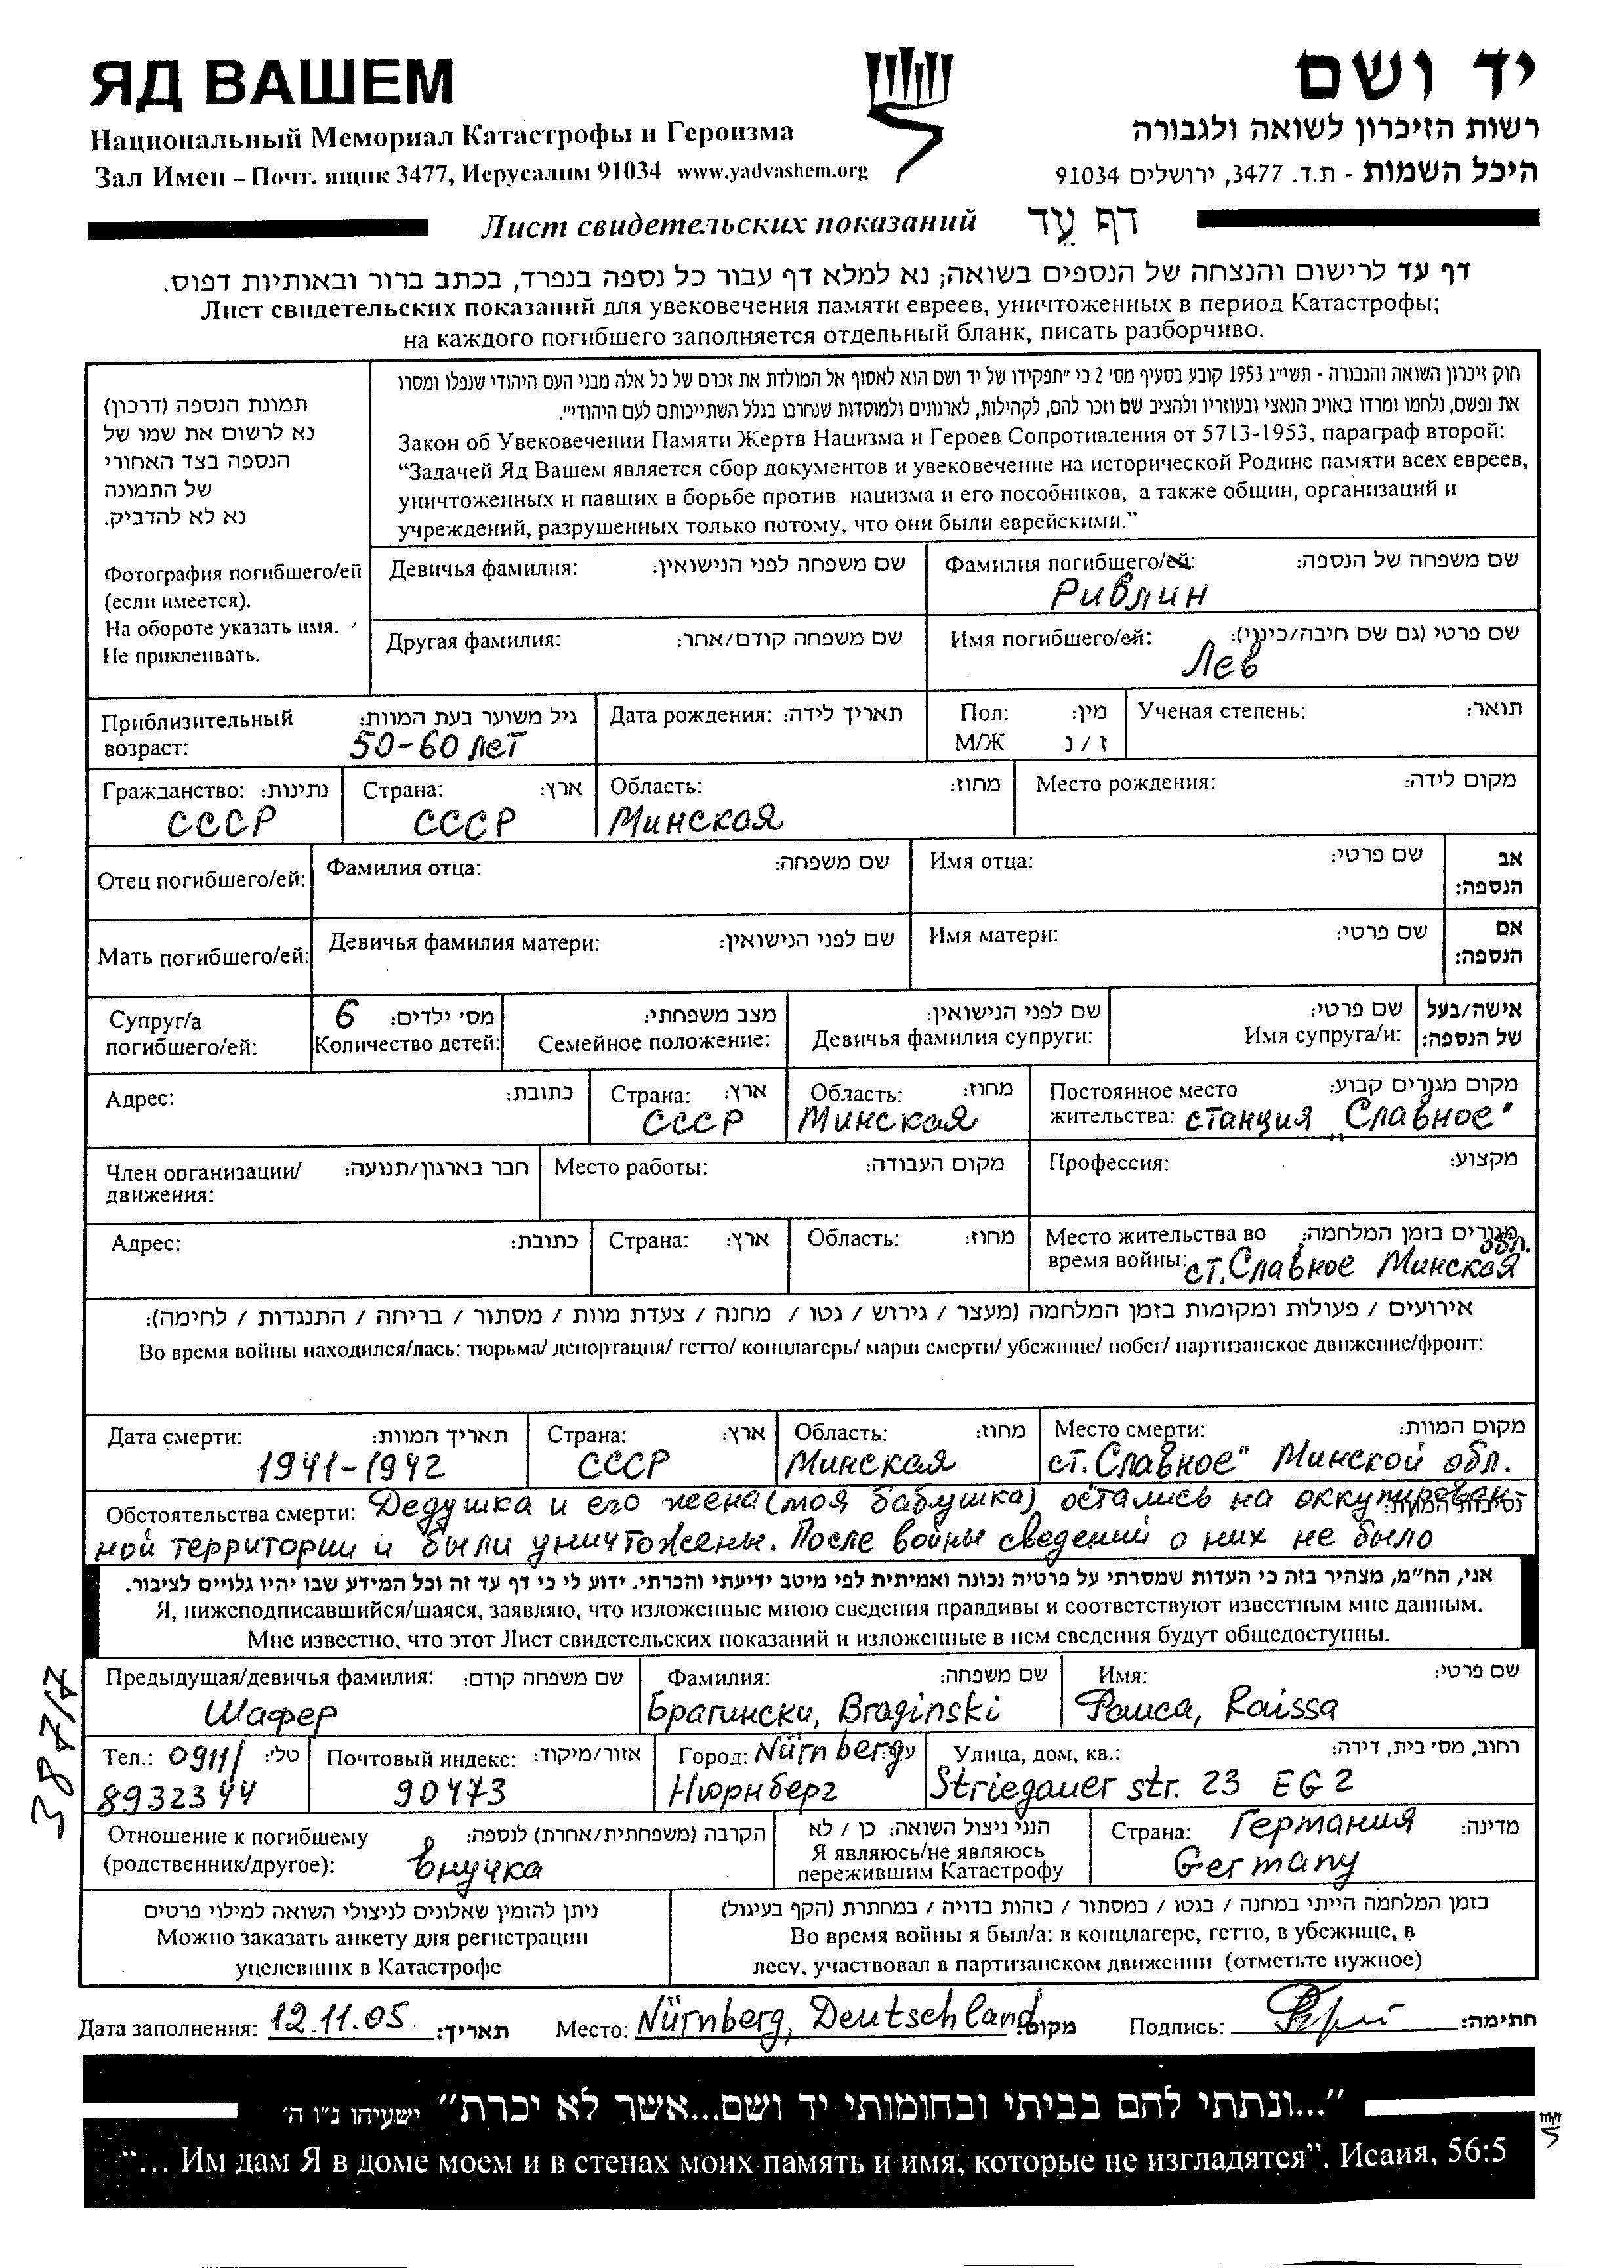 ЯД ВАШЕМ
יד ושם
Национальный Мемориал Катастрофы и Героизма
רשות הזיכרון לשואה ולגבורה
Зал Имен – Почт. ящик 3477, Иерусалим 91034 www.yadvashem.org
היכל השמות - ת.ד. 3477, ירושלים 91034
Лист свидетельских показаний דף עֵד
דף עד לרישום והנצחה של הנספים בשואה; נא למלא דף עבור כל נספה בנפרד, בכתב ברור ובאותיות דפוס.
Лист свидетельских показаний для увековечения памяти евреев, уничтоженных в период Катастрофы;
на каждого погибшего заполняется отдельный бланк, писать разборчиво.
תמונת הנספה (דרכון)
נא לרשום את שמו של
הנספה בצד האחורי
של התמונה
נא לא להדביק.
Фотография погибшего/ей
(если имеется).
На обороте указать имя.
Не приклеивать.
חוק זיכרון השואה והגבורה - תשי"ג 1953 קובע בסעיף מס' 2 כי "תפקידו של יד ושם הוא לאסוף אל המולדת את זכרם של כל אלה מבני העם היהודי שנפלו ומסרו
את נפשם, נלחמו ומרדו באויב הנאצי ובעוזריו ולהציב שם וזכר להם, לקהילות, לארגונים ולמוסדות שנחרבו בגלל השתייכותם לעם היהודי".
Закон об Увековечении Памяти Жертв Нацизма и Героев Сопротивления от 5713-1953, параграф второй:
“Задачей Яд Вашем является сбор документов и увековечение на исторической Родине памяти всех евреев,
уничтоженных и павших в борьбе против нацизма и его пособников, а также общин, организаций и
учреждений, разрушенных только потому, что они были еврейскими.”
Девичья фамилия: שם משפחה לפני הנישואין:
Фамилия погибшего/ей: שם משפחה של הנספה:
Ривлин
Другая фамилия: שם משפחה קודם/אחר:
Имя погибшего/ей: שם פרטי (גם שם חיבה/כינוי):
Лев
Приблизительный возраст: גיל משוער בעת המוות:
50-60 лет
Дата рождения: תאריך לידה:
Пол: מין:
М/Ж ז / נ
Ученая степень: תואר:
Гражданство: נתינות:
СССР
Страна: ארץ:
СССР
Область: מחוז:
Минская
Место рождения: מקום לידה:
Отец погибшего/ей:
Фамилия отца: שם משפחה:
Имя отца: שם פרטי:
אב הנספה:
Мать погибшего/ей:
Девичья фамилия матери: שם לפני הנישואין:
Имя матери: שם פרטי:
אם הנספה:
Супруг/а погибшего/ей:
6 מס' ילדים:
Количество детей:
מצב משפחתי:
Семейное положение:
שם לפני הנישואין:
Девичья фамилия супруги:
שם פרטי:
Имя супруга/и:
אישה/בעל של הנספה:
Адрес: כתובת:
Страна: ארץ:
СССР
Область: מחוז:
Минская
Постоянное место מקום מגורים קבוע:
жительства: станция „Славное"
Член организации/ движения: חבר בארגון/תנועה:
Место работы: מקום העבודה:
Профессия: מקצוע:
Адрес: כתובת:
Страна: ארץ:
Область: מחוז:
Место жительства во מגורים בזמן המלחמה:
время войны: ст. Славное Минская обл.
אירועים / פעולות ומקומות בזמן המלחמה (מעצר / גירוש / גטו / מחנה / צעדת מוות / מסתור / בריחה / התנגדות / לחימה):
Во время войны находился/лась: тюрьма/ депортация/ гетто/ концлагерь/ марш смерти/ убежище/ побег/ партизанское движение/фронт:
Дата смерти: תאריך המוות:
1941-1942
Страна: ארץ:
СССР
Область: מחוז:
Минская
Место смерти: מקום המוות:
ст. Славное" Минской обл.
Обстоятельства смерти: Дедушка и его жена (моя бабушка) остались на оккупирован- נסיבות המוות:
ной территории и были уничтожены. После войны сведений о них не было
אני, הח"מ, מצהיר בזה כי העדות שמסרתי על פרטיה נכונה ואמיתית לפי מיטב ידיעתי והכרתי. ידוע לי כי דף עד זה וכל המידע שבו יהיו גלויים לציבור.
Я, нижеподписавшийся/шаяся, заявляю, что изложенные мною сведения правдивы и соответствуют известным мне данным.
Мне известно, что этот Лист свидетельских показаний и изложенные в нем сведения будут общедоступны.
38717
Предыдущая/девичья фамилия: שם משפחה קודם:
Шафер
Фамилия: שם משפחה:
Брагински, Braginski
Имя: שם פרטי:
Раиса, Raissa
Тел.: 0911/ טל':
8932344
Почтовый индекс: אזור/מיקוד:
90473
Город: Nürnberg
Нюрнберг
Улица, дом, кв.: רחוב, מס' בית, דירה:
Striegauer str. 23 EG 2
Отношение к погибшему הקרבה (משפחתית/אחרת) לנספה:
(родственник/другое): внучка
הנני ניצול השואה: כן / לא
Я являюсь/не являюсь
пережившим Катастрофу
Страна: Германия מדינה:
Germany
ניתן להזמין שאלונים לניצולי השואה למילוי פרטים
Можно заказать анкету для регистрации
уцелевших в Катастрофе
בזמן המלחמה הייתי במחנה / בגטו / במסתור / בזהות בדויה / במחתרת (הקף בעיגול)
Во время войны я был/а: в концлагере, гетто, в убежище, в
лесу, участвовал в партизанском движении (отметьте нужное)
Дата заполнения: 12.11.05. תאריך: Место: Nürnberg, Deutschland מקום: Подпись: חתימה:
"...ונתתי להם בביתי ובחומותי יד ושם...אשר לא יכרת" ישעיהו נ"ו ה'
“... Им дам Я в доме моем и в стенах моих память и имя, которые не изгладятся”. Исаия, 56:5